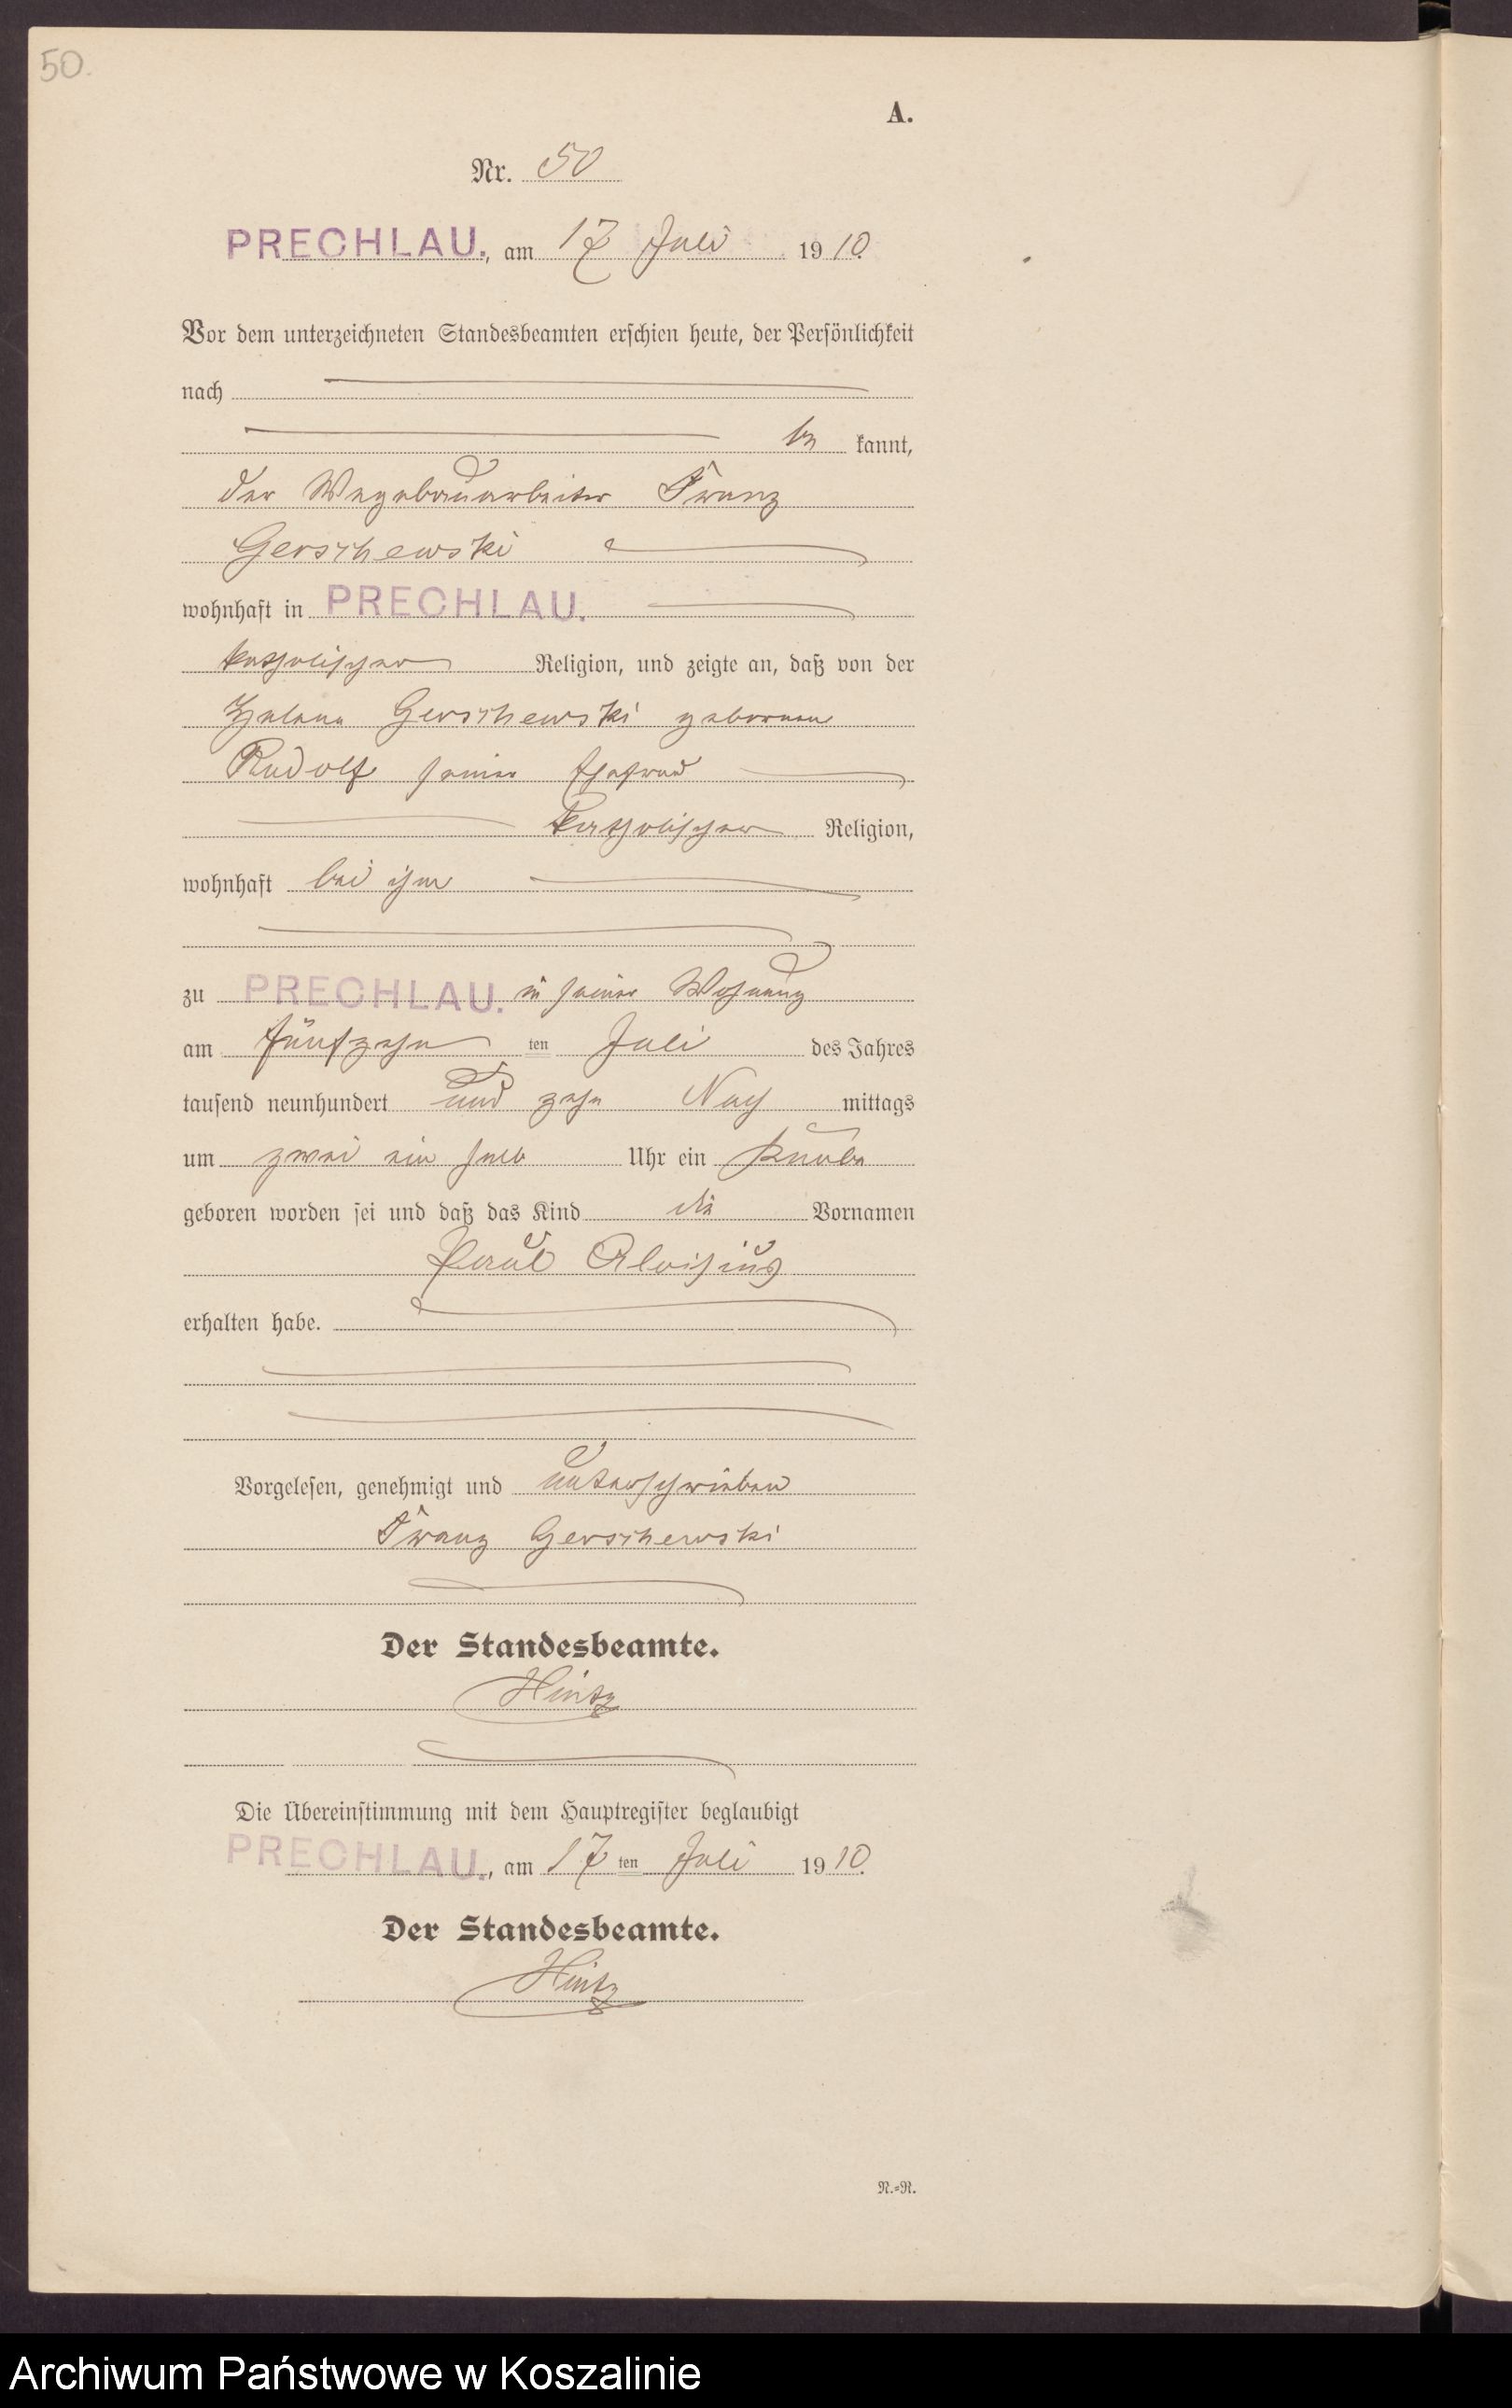 50.
A.
Nr. 50
PRECHLAU., am 17 Juli 1910.
Vor dem unterzeichneten Standesbeamten erschien heute, der Persönlichkeit
nach
be kannt,
der Wegebauarbeiter Franz
Gerschewski
wohnhaft in PRECHLAU.
katholischer Religion, und zeigte an, daß von der
Helene Gerschewski geborenen
Rudolf seiner Ehefrau
katholischer Religion,
wohnhaft bei ihm
zu PRECHLAU. in seiner Wohnung
am fünfzehn ten Juli des Jahres
tausend neunhundert und zehn Nach mittags
um zwei ein halb Uhr ein Knabe
geboren worden sei und daß das Kind die Vornamen
Paul Aloisius
erhalten habe.
Vorgelesen, genehmigt und unterschrieben
Franz Gerschewski
Der Standesbeamte.
Hintz
Die Übereinstimmung mit dem Hauptregister beglaubigt
PRECHLAU., am 17 ten Juli 1910.
Der Standesbeamte.
Hintz
N.=N.
Archiwum Państwowe w Koszalinie